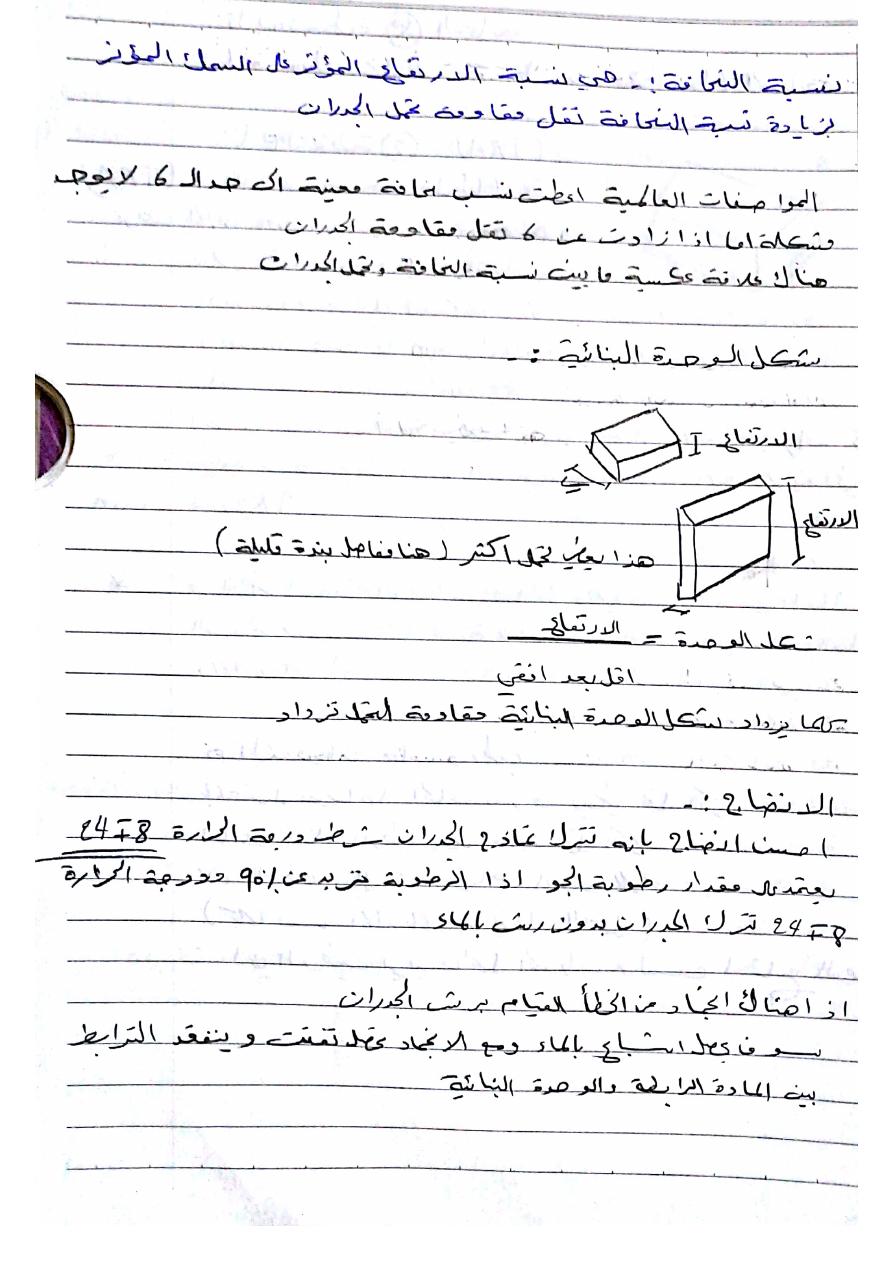 نسبة النحافة :- هي نسبة الارتفاع المؤثر على السمك المؤثر
بزيادة نسبة النحافة تقل مقاومة تحمل الجدران
المواصفات العالمية اعطت نسب نحافة معينة الى حد الـ 6 لا يوجد
مشكلة اما اذا زادت عن 6 تقل مقاومة الجدران
هناك علاقة عكسية ما بين نسبة النحافة وتحمل الجدران
شكل الوحدة البنائية :-
الارتفاع
الارتفاع
هذا يعطي تحمل اكثر (هنا مفاصل بندة قليلة)
شكل الوحدة = الارتفاع
اقل بعد افقي
كلما يزداد شكل الوحدة البنائية مقاومة التحمل تزداد
الانضاج :-
احسن انضاج بانه تترك نماذج الجدران شرط درجة الحرارة 24∓8
يعتمد على مقدار رطوبة الجو اذا الرطوبة تزيد عن 90% ودرجة الحرارة
24∓8 تترك الجدران بدون رش بالماء
اذا هناك انجماد من الخطأ القيام برش الجدران
سوف يحصل اشباع بالماء ومع الانجماد يحصل تفتت وينفقد الترابط
بين المادة الرابطة والوحدة البنائية